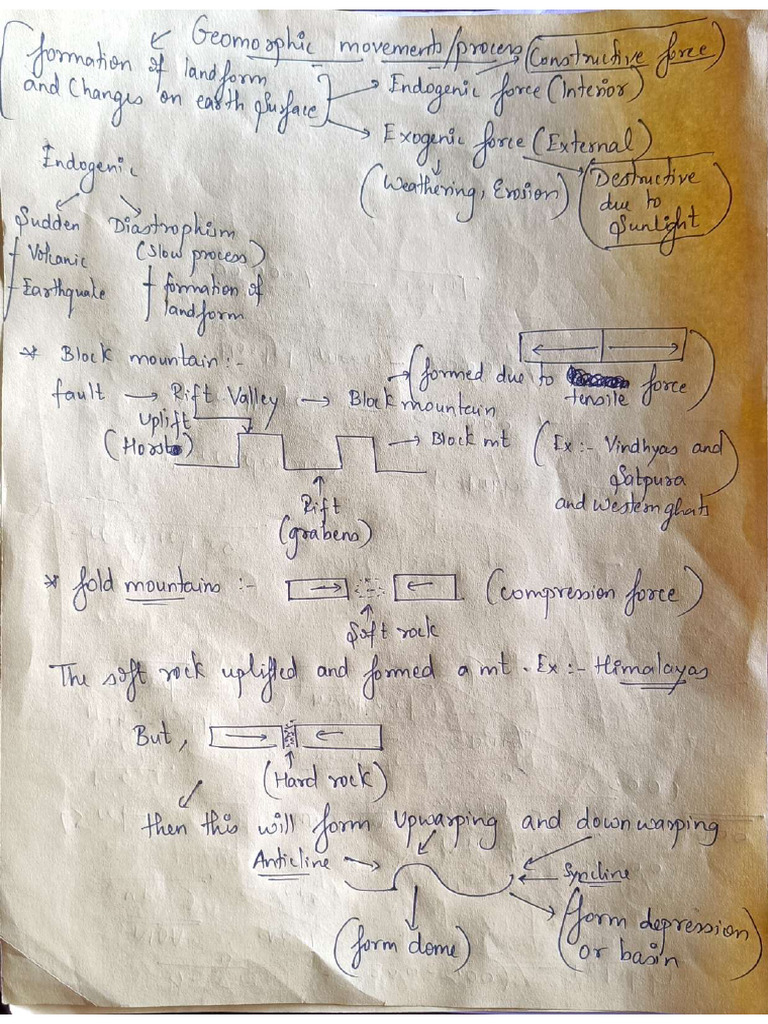 Geomorphic movements/process (Constructive force)
(formation of landform
and Changes on earth surface)
Endogenic force (Interior)
Exogenic force (External)
(Weathering, Erosion)
(Destructive
due to
sunlight)
Endogenic
Sudden
Volcanic
Earthquake
Diastrophism
(Slow process)
formation of
landform
* Block mountain :-
fault → Rift Valley → Block mountain
(formed due to
tensile force)
Uplift
(Horst)
→ Block mt
(Ex :- Vindhyas and
Satpura
and Western ghats)
Rift
(grabens)
* fold mountains :- (compression force)
Soft rock
The soft rock uplifted and formed a mt. Ex :- Himalayas
But,
(Hard rock)
then this will form Upwarping and downwarping
Anticline →
Syncline
(form dome)
(form depression
or basin)